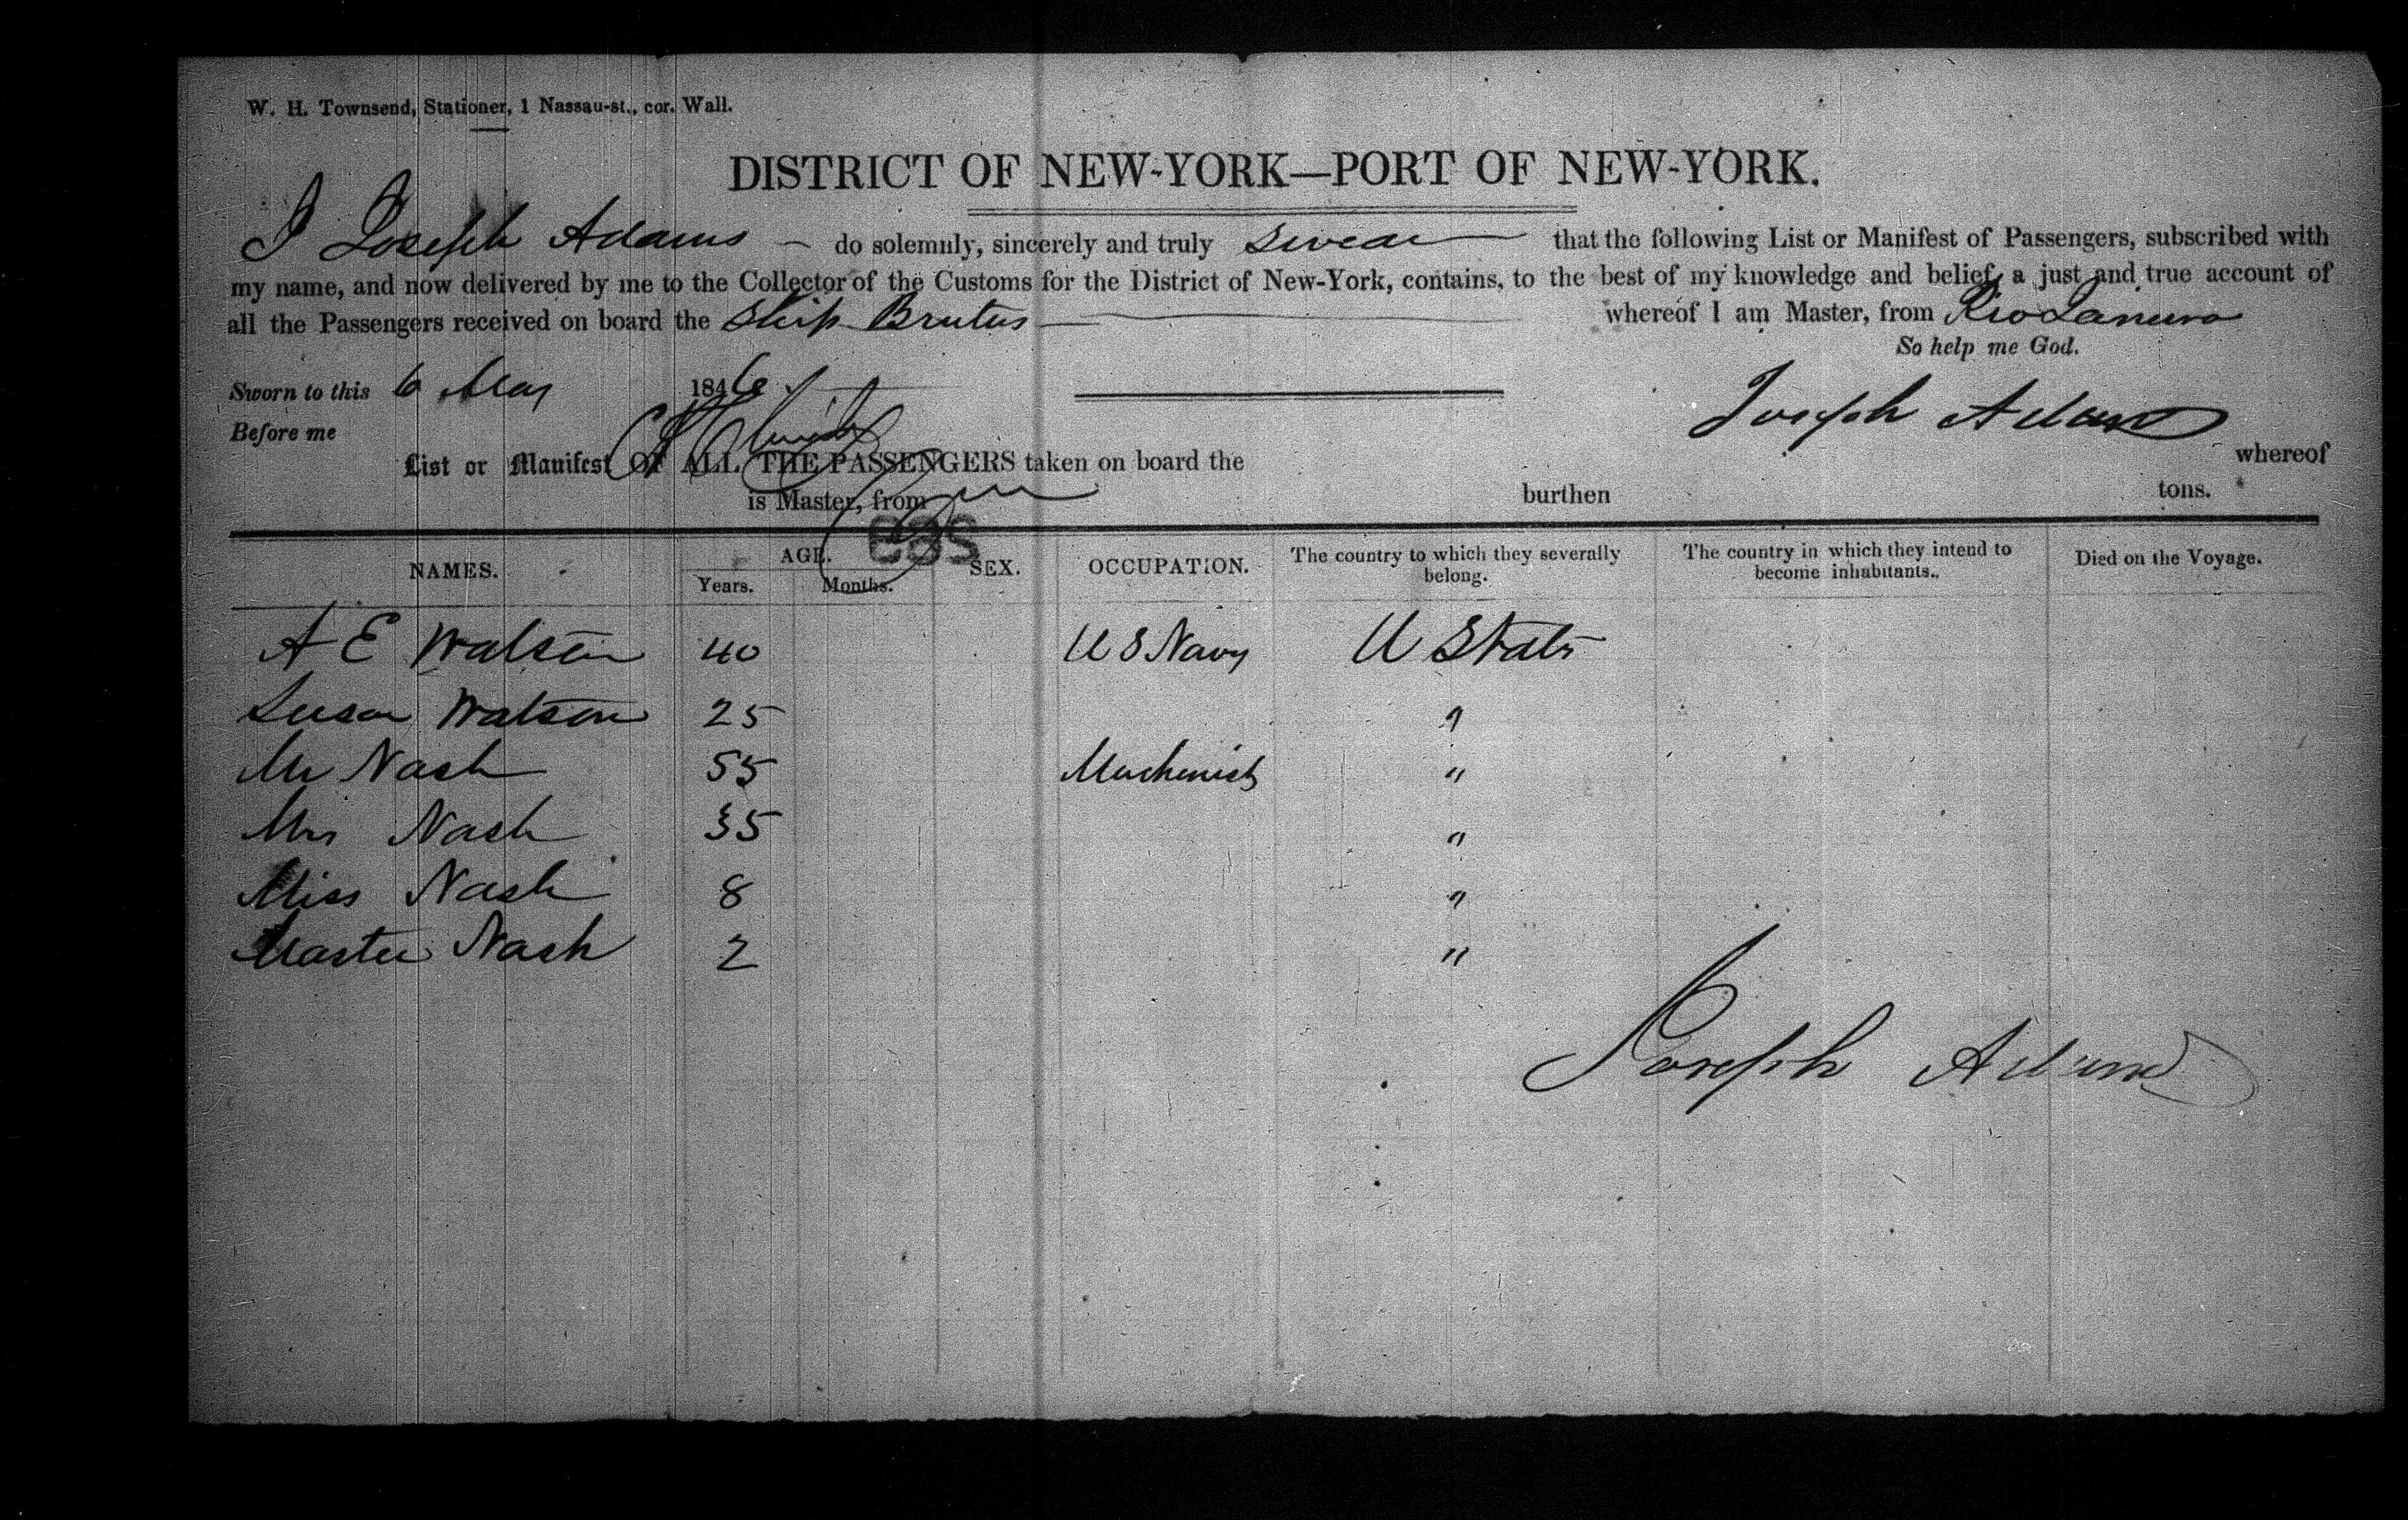 W. H. Townsend, Stationer, 1 Nassau-st., cor. Wall.
DISTRICT OF NEW-YORK—PORT OF NEW-YORK.
I Joseph Adams — do solemnly, sincerely and truly swear that the following List or Manifest of Passengers, subscribed with
my name, and now delivered by me to the Collector of the Customs for the District of New-York, contains, to the best of my knowledge and belief, a just and true account of
all the Passengers received on board the Ship Brutus whereof I am Master, from Rio Janeiro
So help me God.
Sworn to this 6 May 1846
Joseph Adams
Before me
List or Manifest OF ALL THE PASSENGERS taken on board the whereof
is Master, from burthen tons.
NAMES. AGE. SEX. OCCUPATION. The country to which they severally belong. The country in which they intend to become inhabitants. Died on the Voyage.
Years. Months.
A E Watson 40 U S Navy U States
Susan Watson 25 "
Mr Nash 55 Machinist "
Mrs Nash 35 "
Miss Nash 8 "
Master Nash 2 "
Joseph Adams